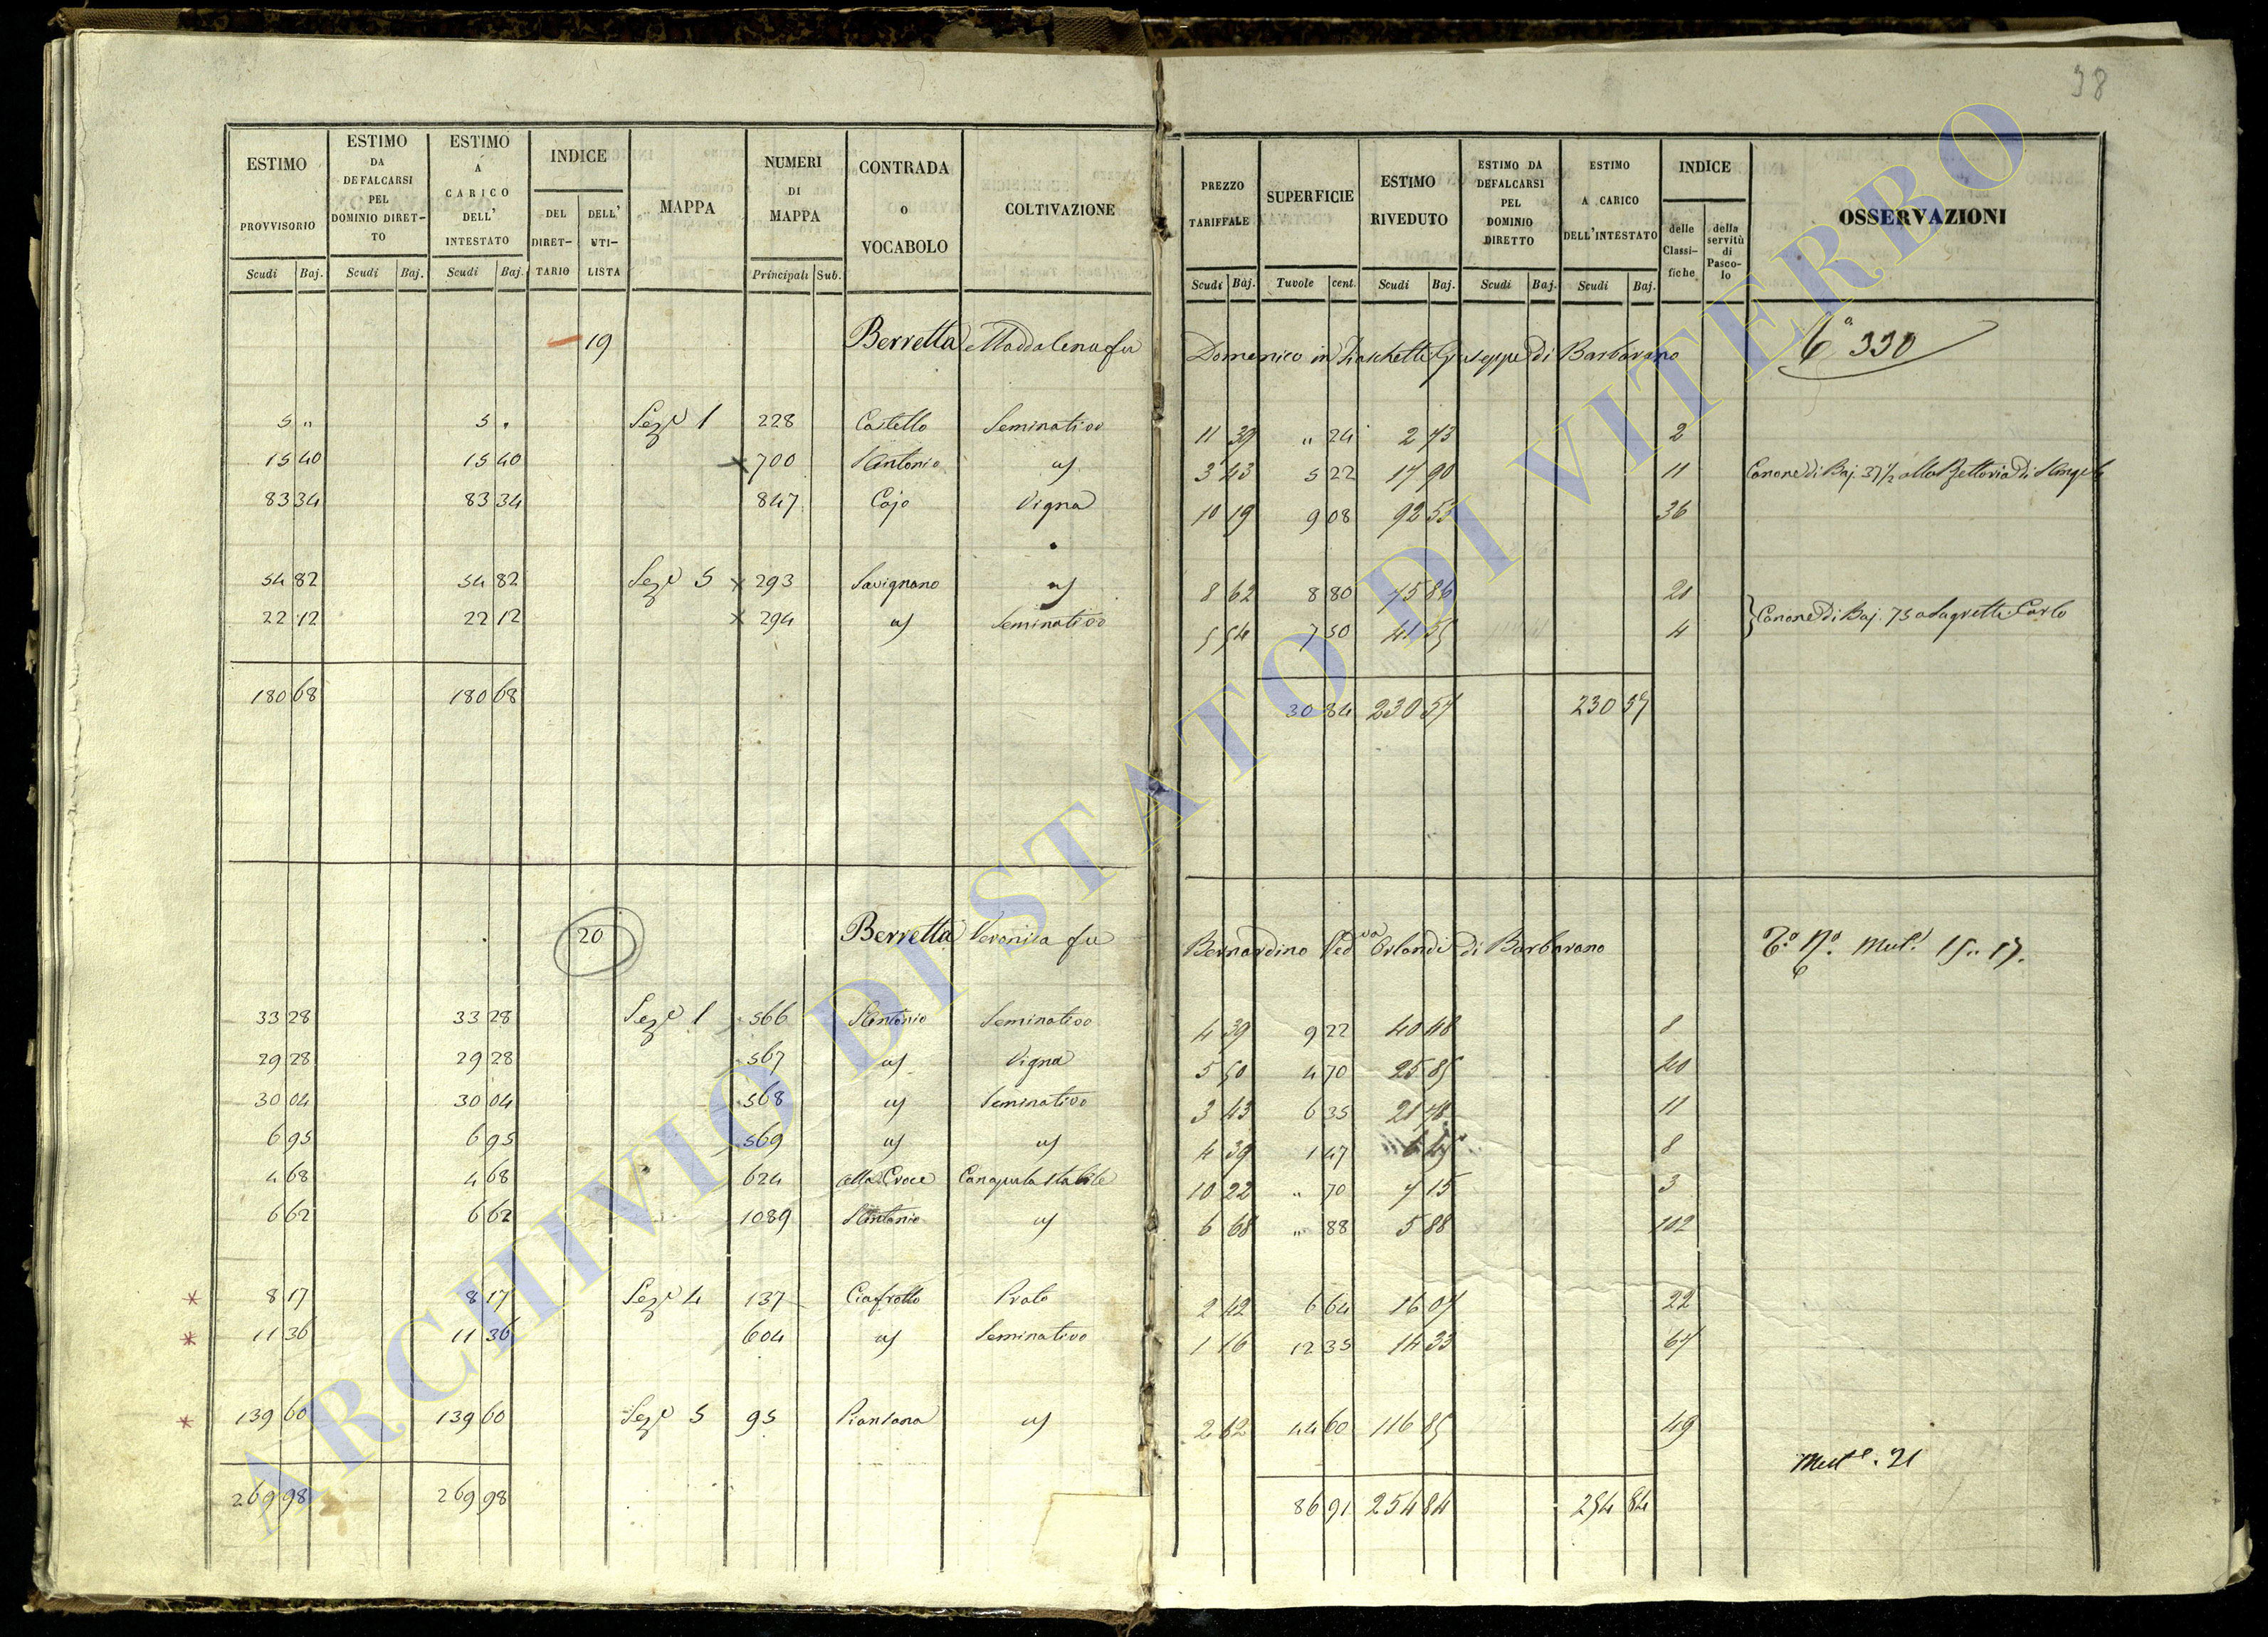 38
ESTIMO PROVVISORIO Scudi Baj.
ESTIMO DA DEFALCARSI PEL DOMINIO DIRET-TO Scudi Baj.
ESTIMO A CARICO DELL' INTESTATO Scudi Baj.
INDICE DEL DIRET-TARIO DELL' UTI-LISTA
MAPPA
NUMERI DI MAPPA Principali Sub.
CONTRADA o VOCABOLO
COLTIVAZIONE
PREZZO TARIFFALE Scudi Baj.
SUPERFICIE Tavole cent.
ESTIMO RIVEDUTO Scudi Baj.
ESTIMO DA DEFALCARSI PEL DOMINIO DIRETTO Scudi Baj.
ESTIMO A CARICO DELL'INTESTATO Scudi Baj.
INDICE delle Classi-fiche della servitù di Pasco-lo
OSSERVAZIONI
19 Berretta Maddalena fu Domenico in Giuseppe di Barbarano 330
5 " 5 " Sez.e 1 228 Castello Seminativo 11 39 " 24 2 73 2
15 40 15 40 x 700 S Antonio uf 3 43 5 22 17 90 11 Canone di Baj. 37 1/2 alla di S Angelo
83 34 83 34 847 Cojo Vigna 10 19 9 08 92 53 36
54 82 54 82 Sez.e 5 x 293 Savignano uf 8 62 8 80 75 86 20
22 12 22 12 x 294 uf Seminativo 5 54 7 50 41 55 4 Canone di Baj. 75 a Sagretti Carlo
180 68 180 68 30 84 230 57 230 57
20 Berretta Veronica fu Bernardino Ved.va Orlandi di Barbarano Mut. 15.. 17.
33 28 33 28 Sez.e 1 566 S Antonio Seminativo 4 39 9 22 40 48 8
29 28 29 28 567 uf Vigna 5 50 4 70 25 85 40
30 04 30 04 568 uf Seminativo 3 43 6 35 21 78 11
6 95 6 95 569 uf uf 4 39 1 47 6 45 8
4 68 4 68 624 alla Croce Canapula stabile 10 22 " 70 7 15 3
6 62 6 62 1089 S Antonio uf 6 68 " 88 5 88 102
* 8 17 8 17 Sez.e 4 137 Ciafrotto Prato 2 42 6 64 16 07 22
* 11 36 11 36 604 uf Seminativo 1 16 12 35 14 33 67
* 139 60 139 60 Sez.e 5 95 Piantana uf 2 62 44 60 116 85 49
Mut.e. 21
269 98 269 98 86 91 254 84 254 84
ARCHIVIO DI STATO DI VITERBO